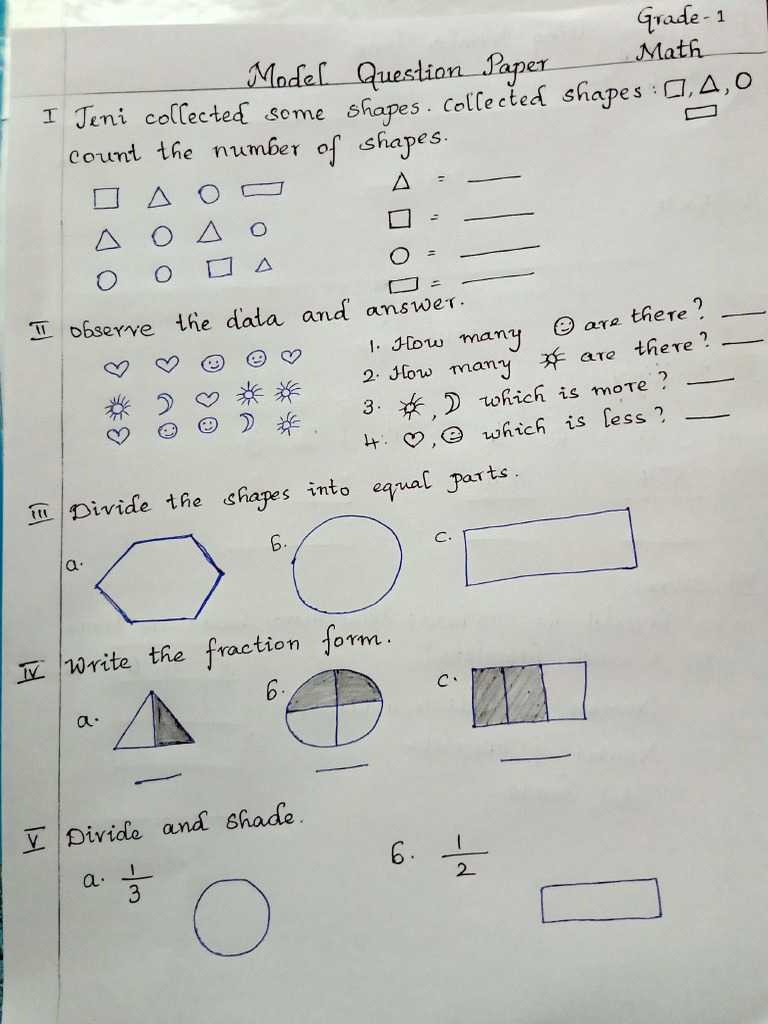 Grade-1
Math
Model Question Paper
I Jeni collected some shapes. collected shapes : □, △, ○
▭
count the number of shapes.
△ = ___
□ = ___
○ = ___
▭ = ___
II observe the data and answer.
1. How many ☺ are there? ___
2. How many ☼ are there? ___
3. ☼, ☽ which is more? ___
4. ♡, ☺ which is less? ___
III Divide the shapes into equal parts.
a. b. c.
IV Write the fraction form.
a. b. c.
V Divide and shade.
a. 1/3 b. 1/2